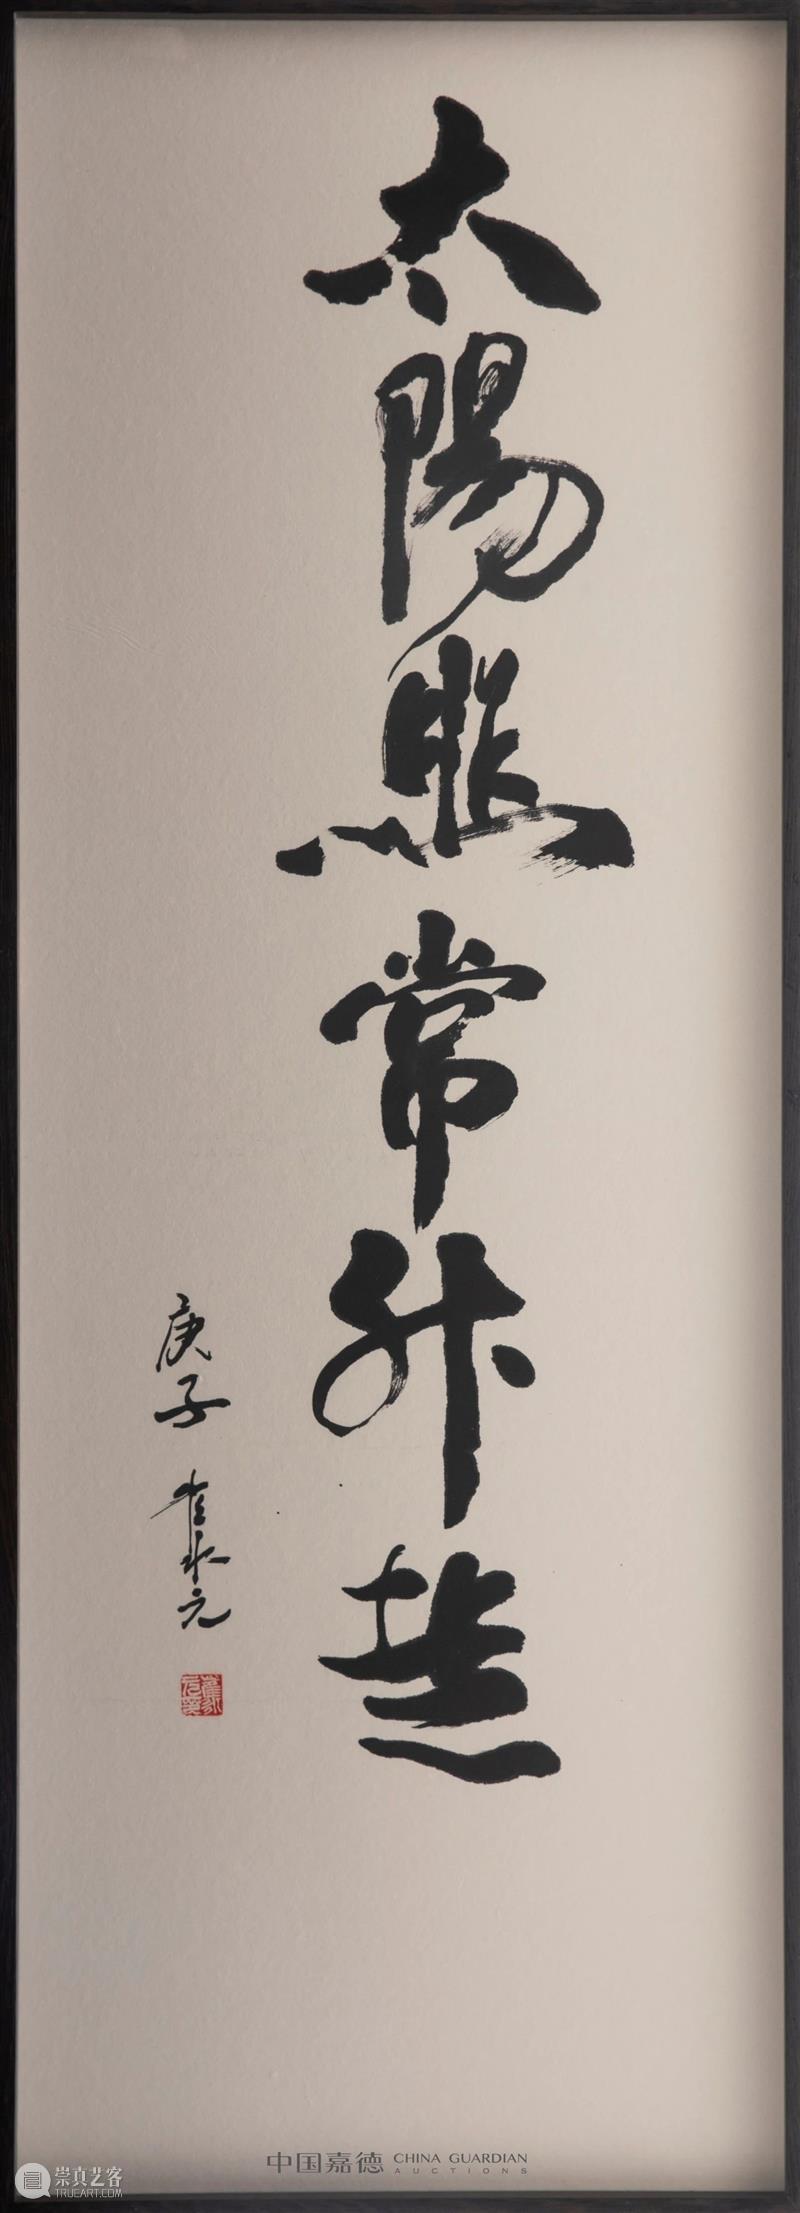 太陽照常升起
庚子 崔永元
中国嘉德 CHINA GUARDIAN
AUCTIONS
崇真艺客
TRUEART.COM